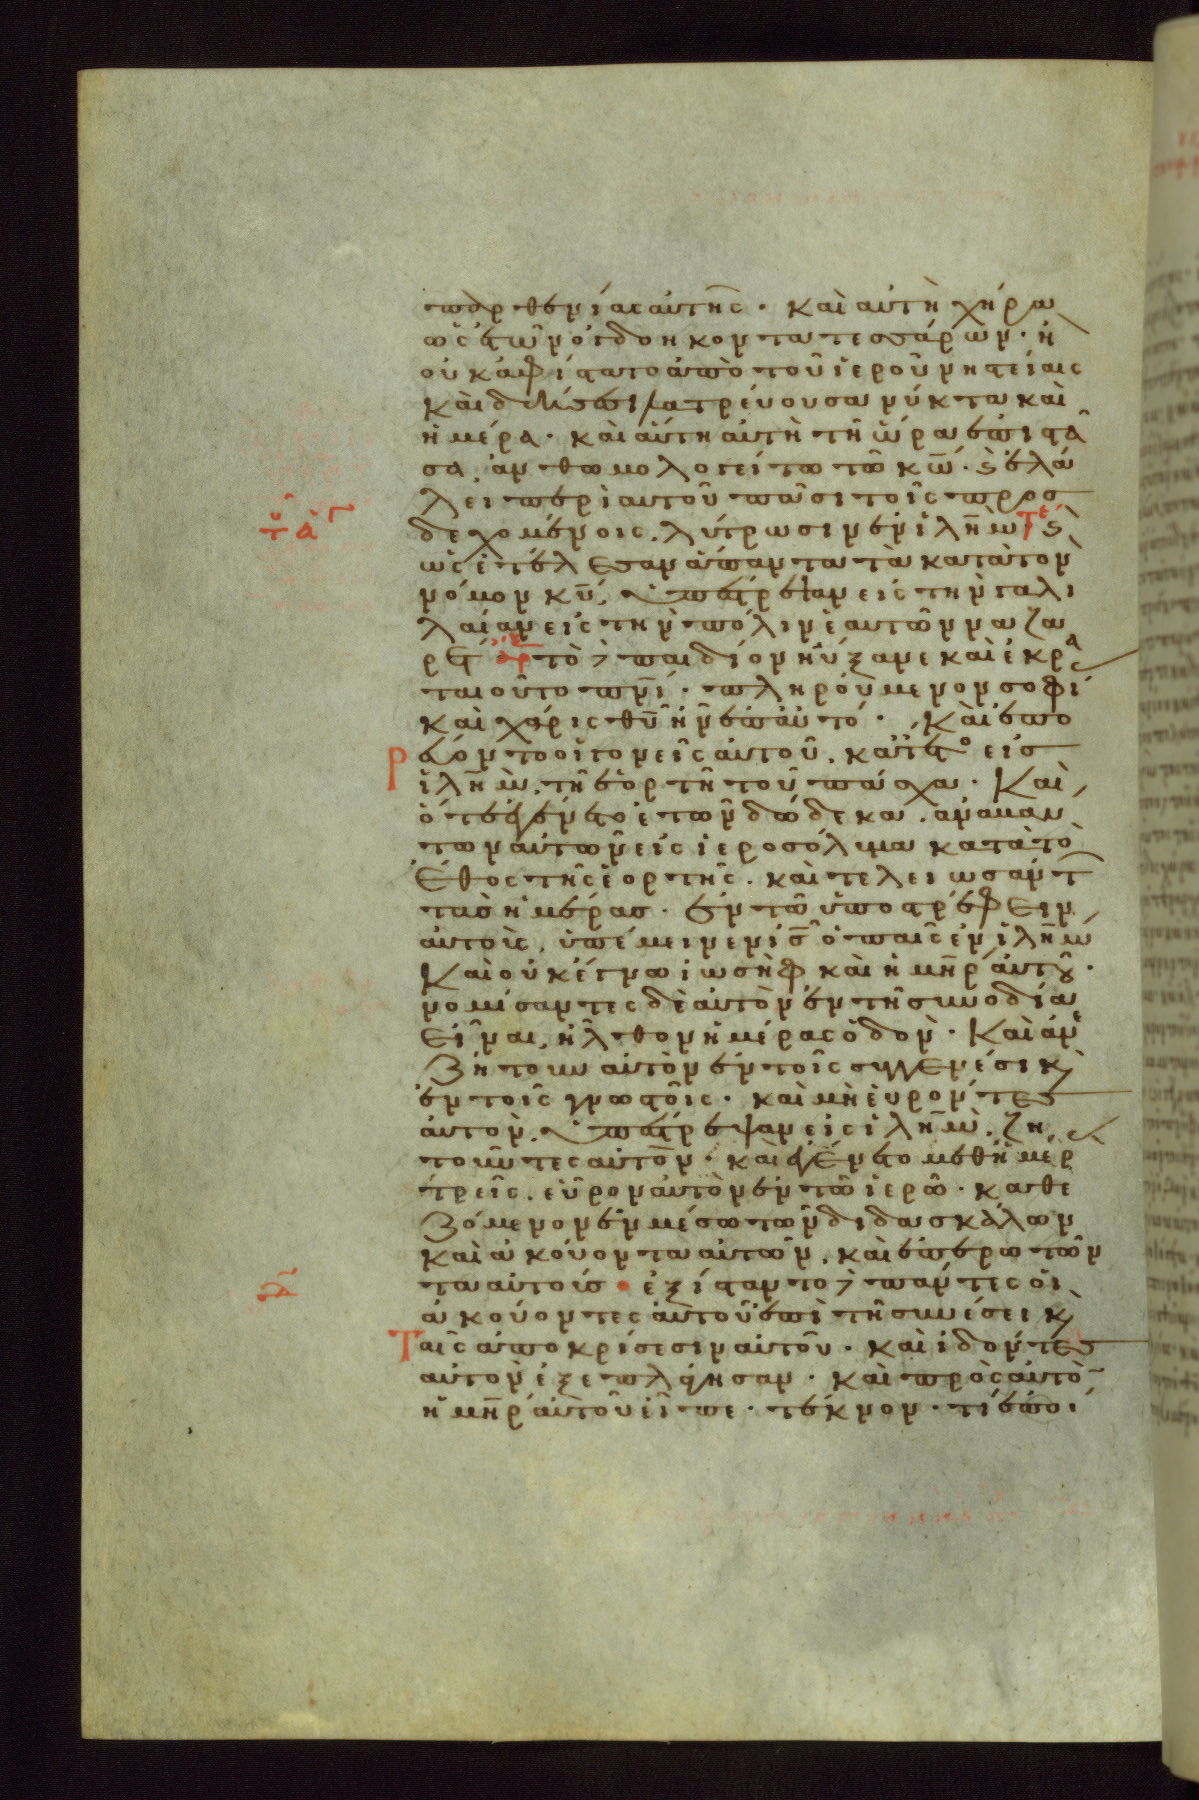 παρθενίας αὐτῆς · καὶ αὐτὴ χήρα
ὡς ἐτῶν ὀγδοήκοντα τεσσάρων · ἣ
οὐκ ἀφίστατο ἀπὸ τοῦ ἱεροῦ νηστείαις
καὶ δεήσεσι λατρεύουσα νύκτα καὶ
ἡμέρα · καὶ αὕτη αὐτῇ τῇ ὥρα ἐπιστᾶ
σα ἀνθωμολογεῖτο τῶ κῶ · καὶ ἐλά
λει περὶ αὐτοῦ πᾶσι τοῖς προσ
δεχομένοις λύτρωσιν ἐν ἱλῆμ τέ καὶ
ὡς ἐτέλεσαν ἅπαντα τὰ κατὰ τὸν
νόμον κῦ, ὑπέστρεψαν εἰς τὴν γαλι
λαίαν εἰς τὴν πόλιν ἑαυτῶν ναζα
ρέτ ἀρ τὸ δὲ παιδίον ηὔξανε καὶ ἐκρα
ταιοῦτο πνῖ · πληρούμενον σοφί
καὶ χάρις θῦ ἦν ἐπ' αὐτό · Καὶ ἐπο
ρεύοντο οἱ γονεῖς αὐτοῦ κατ' ἔτος εἰς
ἱλῆμ τῇ ἑορτῇ τοῦ πάσχα · Καὶ
ὅτε ἐγένετο ἐτῶν δώδεκα ἀναβάν
των αὐτῶν εἰς ἱεροσόλυμα κατὰ τὸ
ἔθος τῆς ἑορτῆς · καὶ τελειωσάντ
τὰς ἡμέρας · ἐν τῶ ὑποστρέφειν
αὐτοὺς, ὑπέμεινεν ις ὁ παῖς ἐν ἱλῆμ
Καὶ οὐκ ἔγνω ἰωσὴφ καὶ ἡ μηρ αὐτοῦ ·
νομίσαντες δὲ αὐτὸν ἐν τῇ συνοδία
εἶναι, ἦλθον ἡμέρας ὁδὸν · Καὶ ἀνε
ζήτουν αὐτὸν ἐν τοῖς συγγενέσι κ
ἐν τοῖς γνωστοῖς · καὶ μὴ εὑρόντες
αὐτὸν, ὑπέστρεψαν εἰς ἱλῆμ ζη
τοῦντες αὐτὸν · καὶ ἐγένετο μεθ' ἡμέρ
τρεῖς, εὗρον αὐτὸν ἐν τῶ ἱερῶ · καθε
ζόμενον ἐν μέσω τῶν διδασκάλων
καὶ ἀκούοντα αὐτῶν, καὶ ἐπερωτῶν
τα αὐτούς ἐξίσταντο δὲ πάντες οἱ
ἀκούοντες αὐτοῦ ἐπὶ τῇ συνέσει κ
Ταῖς ἀποκρίσεσιν αὐτοῦ · καὶ ἰδόντες
αὐτὸν ἐξεπλάγησαν · καὶ πρὸς αὐτὸ
ἡ μηρ αὐτοῦ εἶπε · τέκνον · τί ἐποί